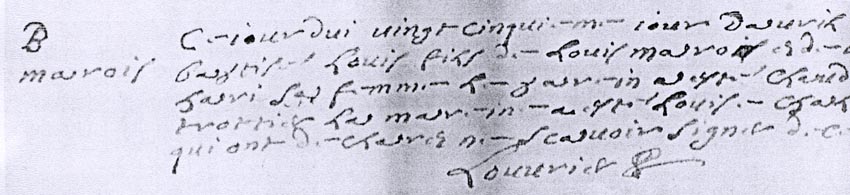 B
marois
Ce iourdui uingt cinquieme iour dauril
baptisé Louis fils de Louis marois et de
sa femme Le parein a esté
trottier La mareine a esté Louise
qui ont declarez ne scauoir signer de ce
Louurier